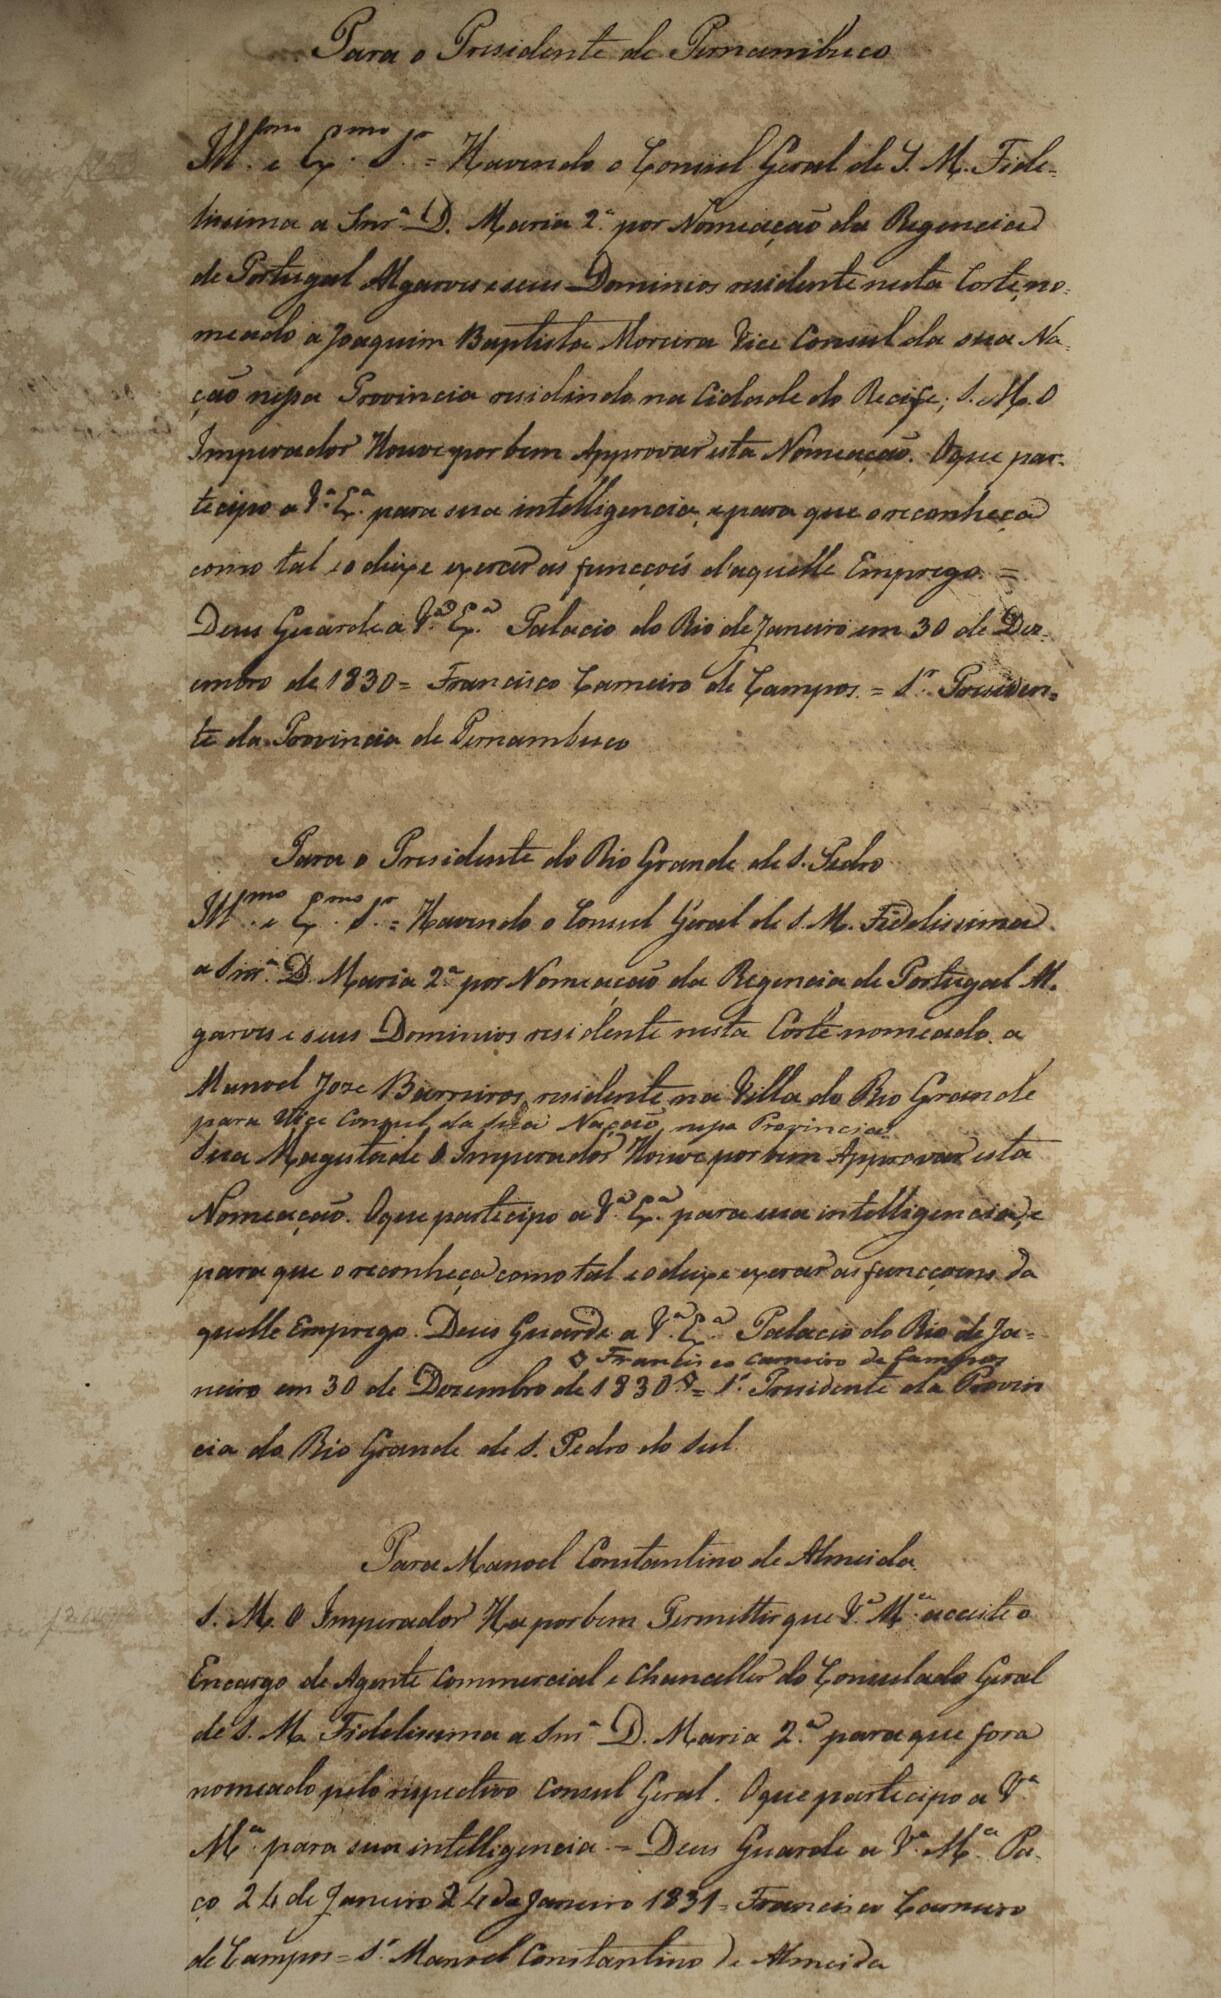 Para o Presidente de Pernambuco
Ill.mo e Ex.mo S.r = Havendo o Consul Geral de S. M. Fide-
lissima a Snr.ª D. Maria 2.ª por Nomeação da Regencia
de Portugal Algarves e seus Dominios residente nesta Corte, no-
meado a Joaquim Baptista Moreira Vice Consul da sua Na-
ção nessa Provincia residindo na Cidade do Recife; S. M. O
Imperador Houve por bem Approvar esta Nomeação. O que par-
tecipo a V.ª Ex.ª para sua intelligencia, e para que o reconheça
como tal e o deixe exercer as funcçoẽs d'aquelle Emprego. =
Deus Guarde a V.ª Ex.ª Palacio do Rio de Janeiro em 30 de Dez-
embro de 1830 = Francisco Carneiro de Campos = S.r Presiden-
te da Provincia de Pernambuco
Para o Presidente do Rio Grande de S. Pedro
Ill.mo e Ex.mo S.r = Havendo o Consul Geral de S. M. Fidelissima
a Snr.ª D. Maria 2.ª por Nomeação da Regencia de Portugal Al-
garves e seus Dominios residente nesta Corte nomeado a
Manoel Joze Barreiros, residente na Villa do Rio Grande
para Vice Consul da sua Nação nessa Provincia
Sua Magestade O Imperador Houve por bem Approvar esta
Nomeação. O que partecipo a V.ª Ex.ª para sua intelligencia, e
para que o reconheça como tal e o deixe exercer as funcçoens da
quelle Emprego. Deus Guarde a V.ª Ex.ª Palacio do Rio de Ja-
Francisco Carneiro de Campos
neiro em 30 de Dezembro de 1830 = S.r Presidente da Provin
cia do Rio Grande de S. Pedro do Sul
Para Manoel Constantino de Almeida
S. M. O Imperador Ha por bem Permittir que V.ª M.ce acceite o
Encargo de Agente Commercial e Chanceller do Consulado Geral
de S. M. Fidelissima a Snr.ª D. Maria 2.ª para que fora
nomeado pelo respectivo Consul Geral. O que partecipo a V.ª
M.ce para sua intelligencia = Deus Guarde a V.ª M.ce Pa-
ço 24 de Janeiro 24 de Janeiro 1831 = Francisco Carneiro
de Campos = S.r Manoel Constantino de Almeida